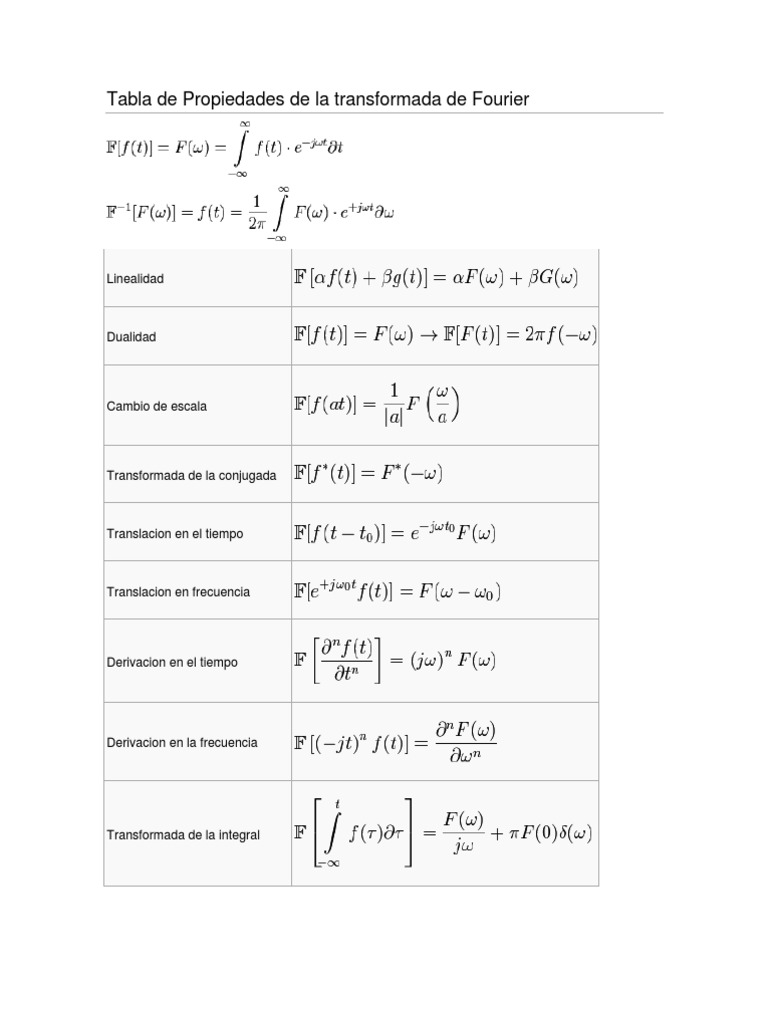 Tabla de Propiedades de la transformada de Fourier
𝔽[f(t)] = F(ω) = ∫_{−∞}^{∞} f(t) · e^{−jωt}∂t
𝔽^{−1}[F(ω)] = f(t) = \frac{1}{2π} ∫_{−∞}^{∞} F(ω) · e^{+jωt}∂ω
Linealidad 𝔽[αf(t) + βg(t)] = αF(ω) + βG(ω)
Dualidad 𝔽[f(t)] = F(ω) → 𝔽[F(t)] = 2πf(−ω)
Cambio de escala 𝔽[f(at)] = \frac{1}{|a|} F(\frac{ω}{a})
Transformada de la conjugada 𝔽[f^{*}(t)] = F^{*}(−ω)
Translacion en el tiempo 𝔽[f(t − t_0)] = e^{−jωt_0}F(ω)
Translacion en frecuencia 𝔽[e^{+jω_0t}f(t)] = F(ω − ω_0)
Derivacion en el tiempo 𝔽[\frac{∂^n f(t)}{∂t^n}] = (jω)^n F(ω)
Derivacion en la frecuencia 𝔽[(−jt)^n f(t)] = \frac{∂^n F(ω)}{∂ω^n}
Transformada de la integral 𝔽[∫_{−∞}^{t} f(τ)∂τ] = \frac{F(ω)}{jω} + πF(0)δ(ω)